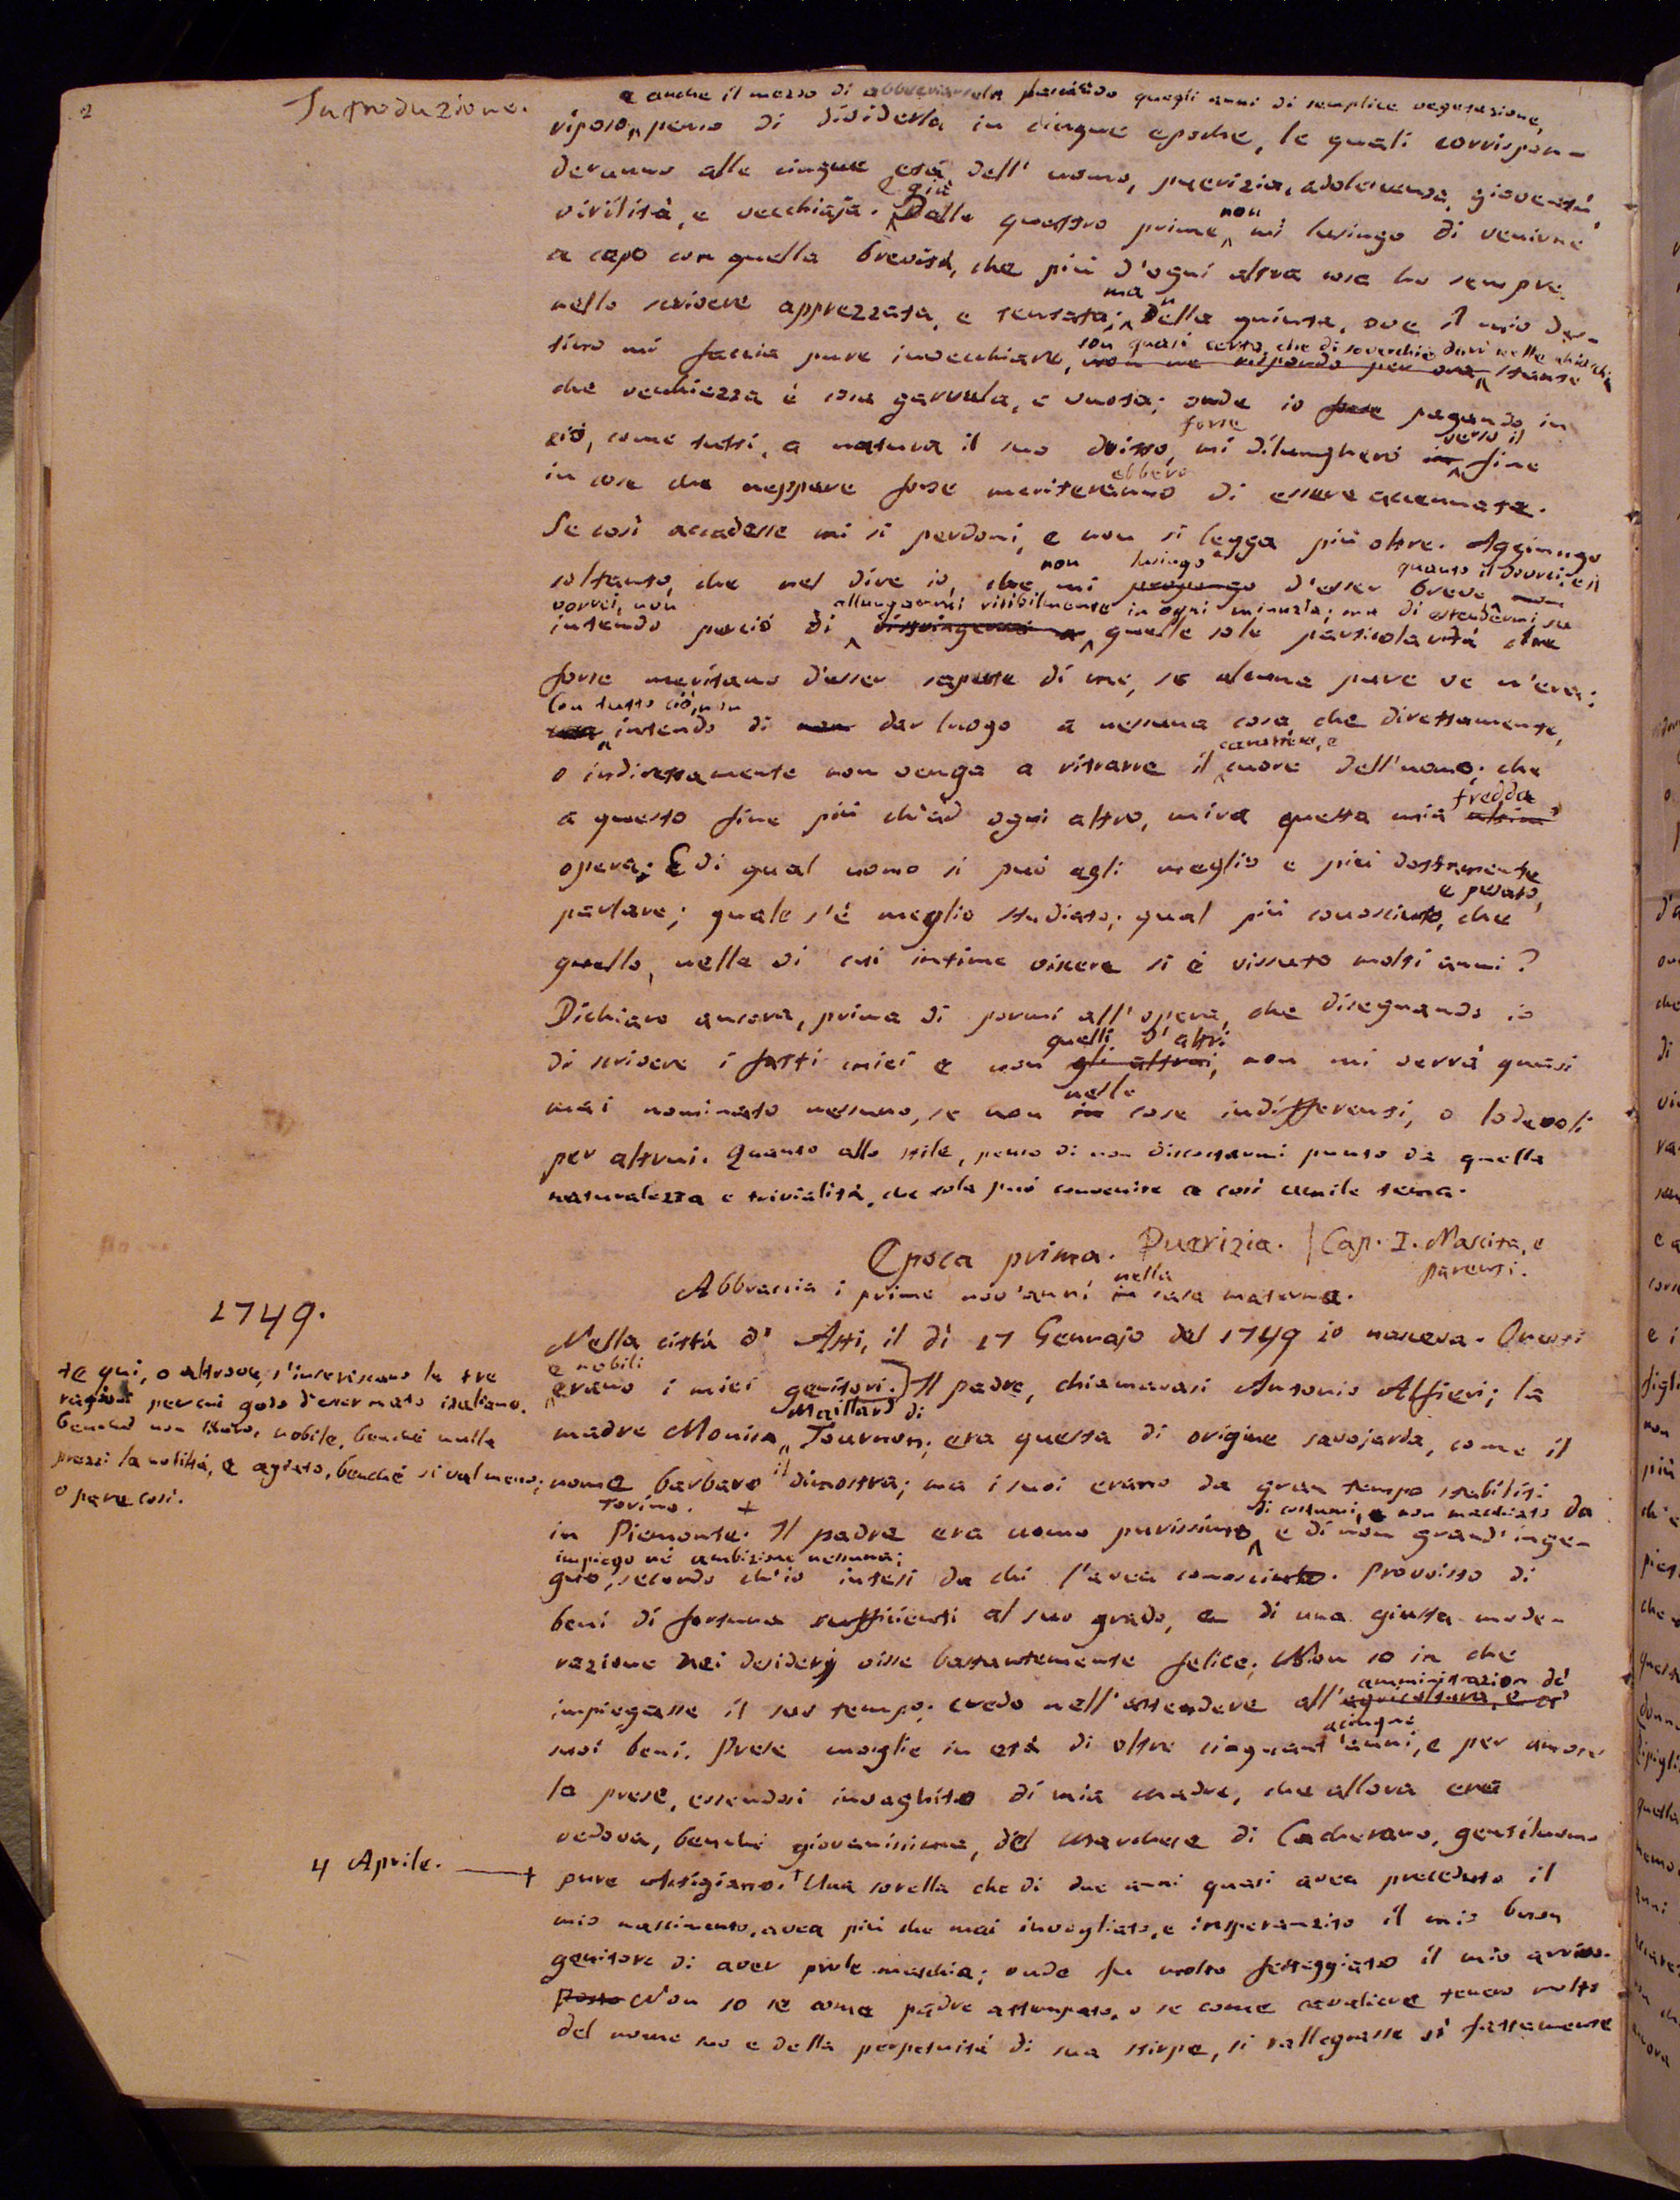 2
Introduzione.
e anche il mezzo di abbreviarsela lasciando quegli anni di semplice vegetazione,
riposo, penso di dividerla in cinque epoche, le quali corrispon-
deranno alle cinque età dell'uomo, puerizia, adolescenza, gioventù,
e già
virilità, e vecchiaja. Dalle quattro prime non mi lusingo di venirne
a capo con quella brevità, che più d'ogni altra cosa ho sempre
ma n
nello scrivere apprezzata, e tentata; Della quinta, ove il mio des-
son quasi certo, che di soverchio darò nelle chiacchiere
tino mi faccia pure invecchiare, non ne rispondo per ora, stante
che vecchiezza è cosa garrula, e vuota; onde io forse pagando in
forse verso il
ciò, come tutti, a natura il suo dritto, mi dilungherò in fine
ebbero
in cose che neppure forse meriteranno di essere accennate.
Se così accadesse mi si perdoni, e non si legga più oltre. Aggiungo
non lusingo quanto il dovrei, e il
soltanto, che nel dire io, che mi propongo d'esser breve non
vorrei, non allungarmi risibilmente in ogni minuzia; ma di estendermi su
intendo perciò di ristringermi a quelle sole particolarità che
forse meritano d'esser sapute di me, se alcuna pure ve n'era:
Con tutto ciò, non
intendo di non dar luogo a nessuna cosa che direttamente,
carattere, e
o indirettamente non venga a ritrarre il cuore dell'uomo; che
fredda
a questo fine più ch'ad ogni altro, mira questa mia
opera; E di qual uomo si può egli meglio e più dottamente
e pesato,
parlare; quale s'è meglio studiato; qual più conosciuto, che
quello, nelle di cui intime viscere si è vissuto molti anni?
Dichiaro ancora, prima di pormi all'opera, che disegnando io
quelli d'altri
di scrivere i fatti miei e non gli altrui, non mi verrà quasi
nelle
mai nominato nessuno, se non in cose indifferenti, o lodevoli
per altrui. Quanto allo stile, penso di non discostarmi punto da quella
naturalezza e trivialità, che sola può convenire a così umile tema.
Epoca prima. Puerizia. | Cap. I. Nascita, e
parenti.
nella
Abbraccia i primi nov'anni in casa materna.
1749.
Nella città d'Asti, il dì 17 Gennajo del 1749 io nasceva. Onesti
e nobili
erano i miei genitori.] Il padre, chiamavasi Antonio Alfieri; la
Maillard di
madre Monica, Tournon; era questa di origine savojarda, come il
nome barbaro il dimostra; ma i suoi erano da gran tempo stabiliti
Torino. +
in Piemonte. Il padre era uomo purissimo di costumi, e non macchiato da
e di non grand'inge-
impiego né ambizione nessuna;
gno, secondo ch'io intesi da chi l'avea conosciuto. Provvisto di
beni di fortuna sufficienti al suo grado, e di una giusta mode-
razione nei desiderj visse bastantemente felice; Non so in che
amministrazion de'
impiegasse il suo tempo; credo nell'attendere all'agricoltura, e a'
acinque
suoi beni. Prese moglie in età di oltre cinquant'anni, e per amore
la prese, essendosi invaghito di mia madre, che allora era
vedova, benché giovanissima, del Marchese di Cacherano, gentiluomo
pure Astigiano. + Una sorella che di due anni quasi avea preceduto il
mio nascimento, avea più che mai invogliato, e insperanzito il mio buon
genitore di aver prole maschia; onde fu molto festeggiato il mio arrivo.
Non so se come padre attempato, o se come cavaliere tenero molto
del nome suo e della perpetuità di sua stirpe, si rallegrasse sì fattamente
+ E qui, o altrove, s'inseriscano le tre
ragioni per cui godo d'esser nato italiano,
benché non libero, nobile, benché nulla
prezzi la nobiltà, e agiato, benché si val meno;
o pare così.
4 Aprile. +